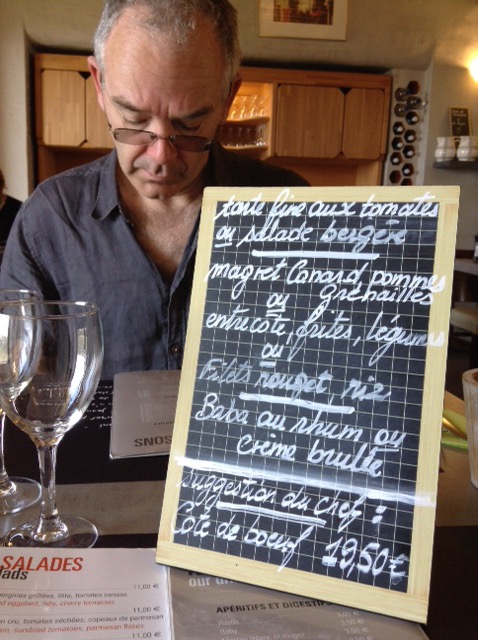 tarte fine aux tomates
ou salade bergère
magret Canard pommes
ou Grénailles
entrecôte, frites, légumes
ou
Filets rouget, riz
Baba au rhum ou
crème brulée
suggestion du chef :
Côte de boeuf 19,50€
SALADES
11,00 €
11,00 €
11,00 €
APÉRITIFS ET DIGESTIFS